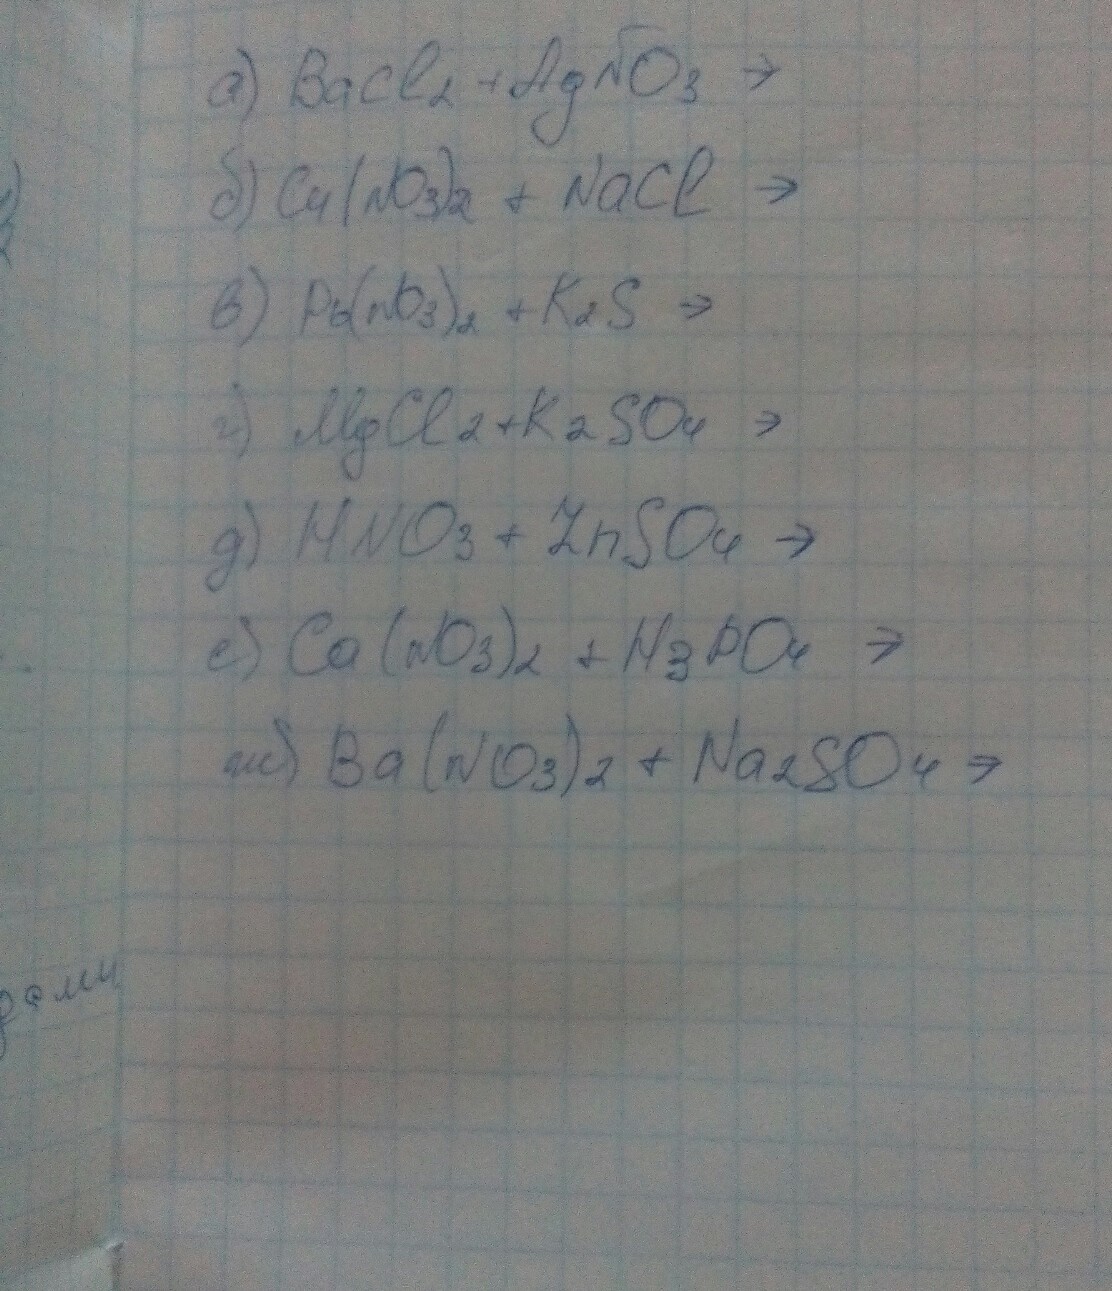 а) BaCl2 + AgNO3 →
б) Cu(NO3)2 + NaCl →
в) Pb(NO3)2 + K2S →
г) MgCl2 + K2SO4 →
д) HNO3 + ZnSO4 →
е) Ca(NO3)2 + H3PO4 →
ж) Ba(NO3)2 + Na2SO4 →